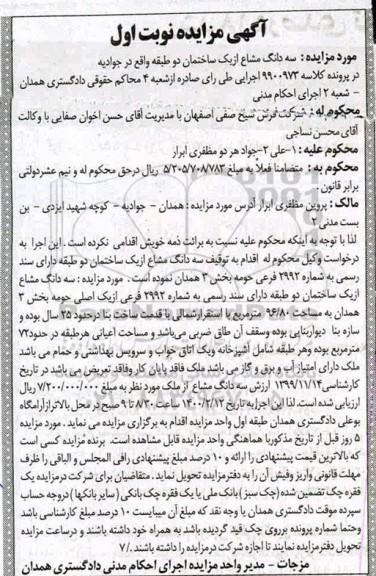 آگهی مزایده نوبت اول
مورد مزایده : سه دانگ مشاع ازیک ساختمان دو طبقه واقع در جوادیه
در پرونده کلاسه ۹۹۰۰۹۷۳ اجرایی طی رای صادره ازشعبه ۴ محاکم حقوقی دادگستری همدان
– شعبه ۲ اجرای احکام مدنی
محکوم له : شرکت فرش شیخ صفی اصفهان با مدیریت آقای حسن اخوان صفایی با وکالت
آقای محسن نساجی
محکوم علیه : ۱-علی ۲-جواد هر دو مظفری ابرار
محکوم به : متضامنا فعلاً به مبلغ ۵/۲۰۵/۷۰۸/۷۸۳ ریال درحق محکوم له و نیم عشردولتی
برابر قانون .
مالک : پروین مظفری ابرار آدرس مورد مزایده : همدان – جوادیه – کوچه شهید ایزدی – بن
بست مدنی ۲
لذا با توجه به اینکه محکوم علیه نسبت به برائت ذمه خویش اقدامی نکرده است . این اجرا به
درخواست وکیل محکوم له اقدام به توقیف سه دانگ مشاع ازیک ساختمان دو طبقه دارای سند
رسمی به شماره ۲۹۹۲ فرعی حومه بخش ۳ همدان نموده است . مورد مزایده : سه دانگ مشاع
ازیک ساختمان دو طبقه دارای سند رسمی به شماره ۲۹۹۲ فرعی ازیک اصلی حومه بخش ۳
همدان به مساحت ۹۶/۸۰ مترمربع با استقرارشمالی با قدمت ساخت بنا درحدود ۲۵ سال بوده و
سازه بنا دیواربنایی بوده وسقف آن طاق ضربی می‌باشد و مساحت اعیانی هرطبقه در حدود۷۲
مترمربع بوده وهر طبقه شامل آشپزخانه ویک اتاق خواب و سرویس بهداشتی و حمام می باشد
ملک دارای امتیازآب و برق و گاز می باشد ملک فاقد پایان کار وفاقد تعریض می باشد در تاریخ
کارشناسی۱۳۹۹/۱۱/۱۴ ارزش سه دانگ مشاع از ملک مورد نظر به مبلغ ۷/۲۰۰/۰۰۰/۰۰۰ ریال
ارزیابی شده است. لذا این اجرا به تاریخ ۱۴۰۰/۲/۱۲ ساعت ۸/۳۰ تا ۹ صبح در محل بالاترازآرامگاه
بوعلی دادگستری همدان طبقه اول واحد مزایده اقدام به برگزاری مزایده می نماید . مورد مزایده
۵ روز قبل از تاریخ مذکوربا هماهنگی واحد مزایده قابل مشاهده است. برنده مزایده کسی است
که بالاترین قیمت پیشنهادی را ارائه و ۱۰ درصد مبلغ پیشنهادی رافی المجلس و الباقی را ظرف
مهلت قانونی واریز وفیش آن را به دفترمزایده تحویل نماید . متقاضیان برای شرکت درمزایده یک
فقره چک تضمین شده (چک سبز) بانک ملی یا یک فقره چک بانکی ( سایر بانکها ) دروجه حساب
سپرده موقت دادگستری همدان یا وجه نقد که مبلغ آن میبایست ۱۰ درصد مبلغ کارشناسی باشد
وحتما شماره پرونده برروی چک قید گردیده باشد به همراه خود داشته باشند و درساعت مزایده
تحویل دفترمزایده نمایند تا اجازه شرکت درمزایده را داشته باشند ./۷
مزجات – مدیر واحد مزایده اجرای احکام مدنی دادگستری همدان